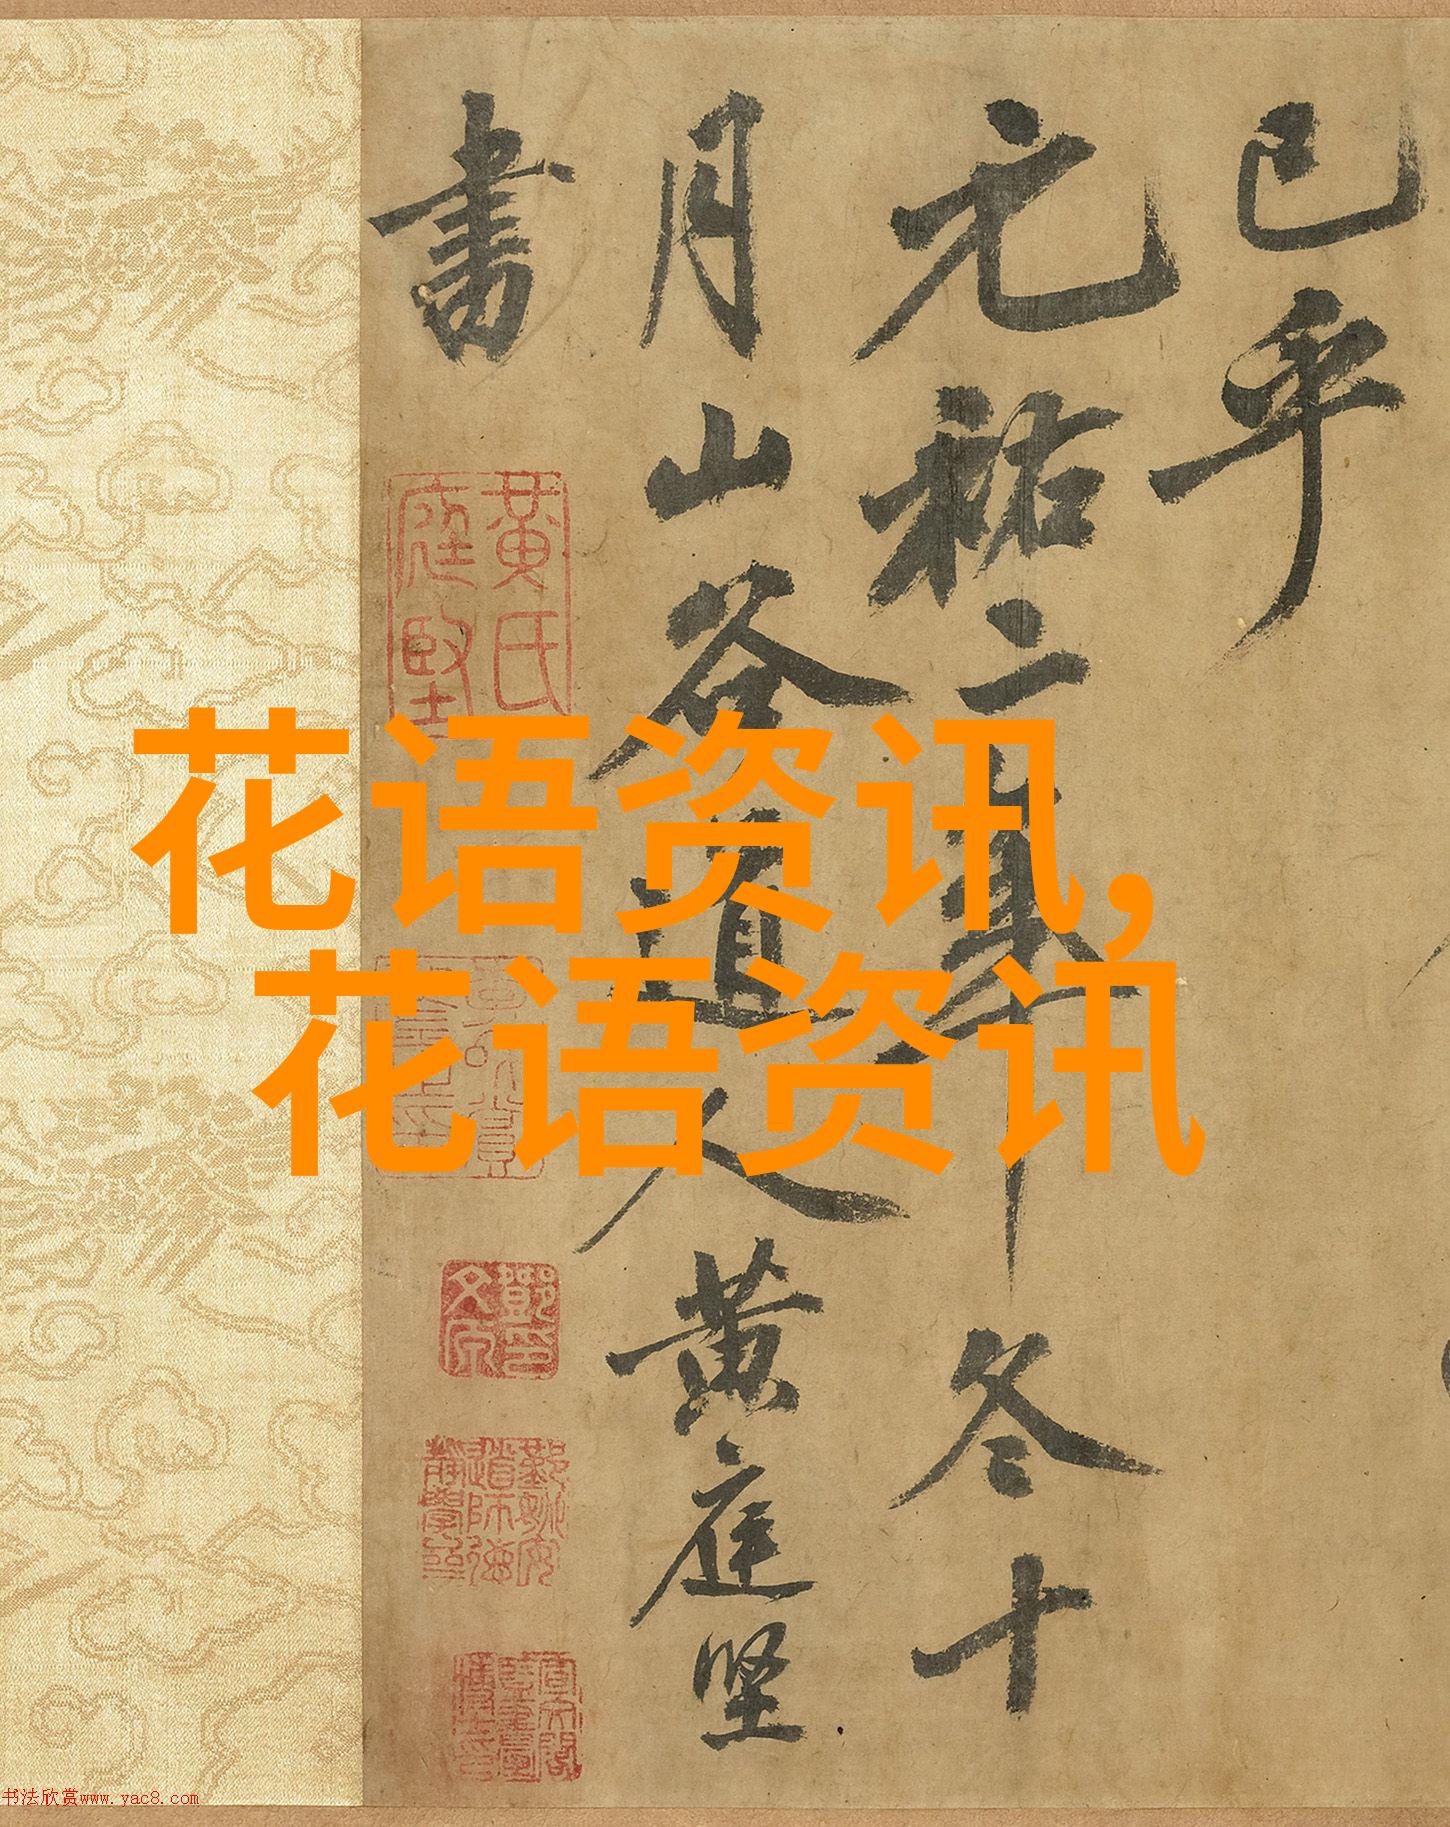 已乎
元祐二年中冬十
月山谷道人黄庭坚
書
黄氏庭堅
花语资讯,
花语资讯
书法欣赏www.yac8.com